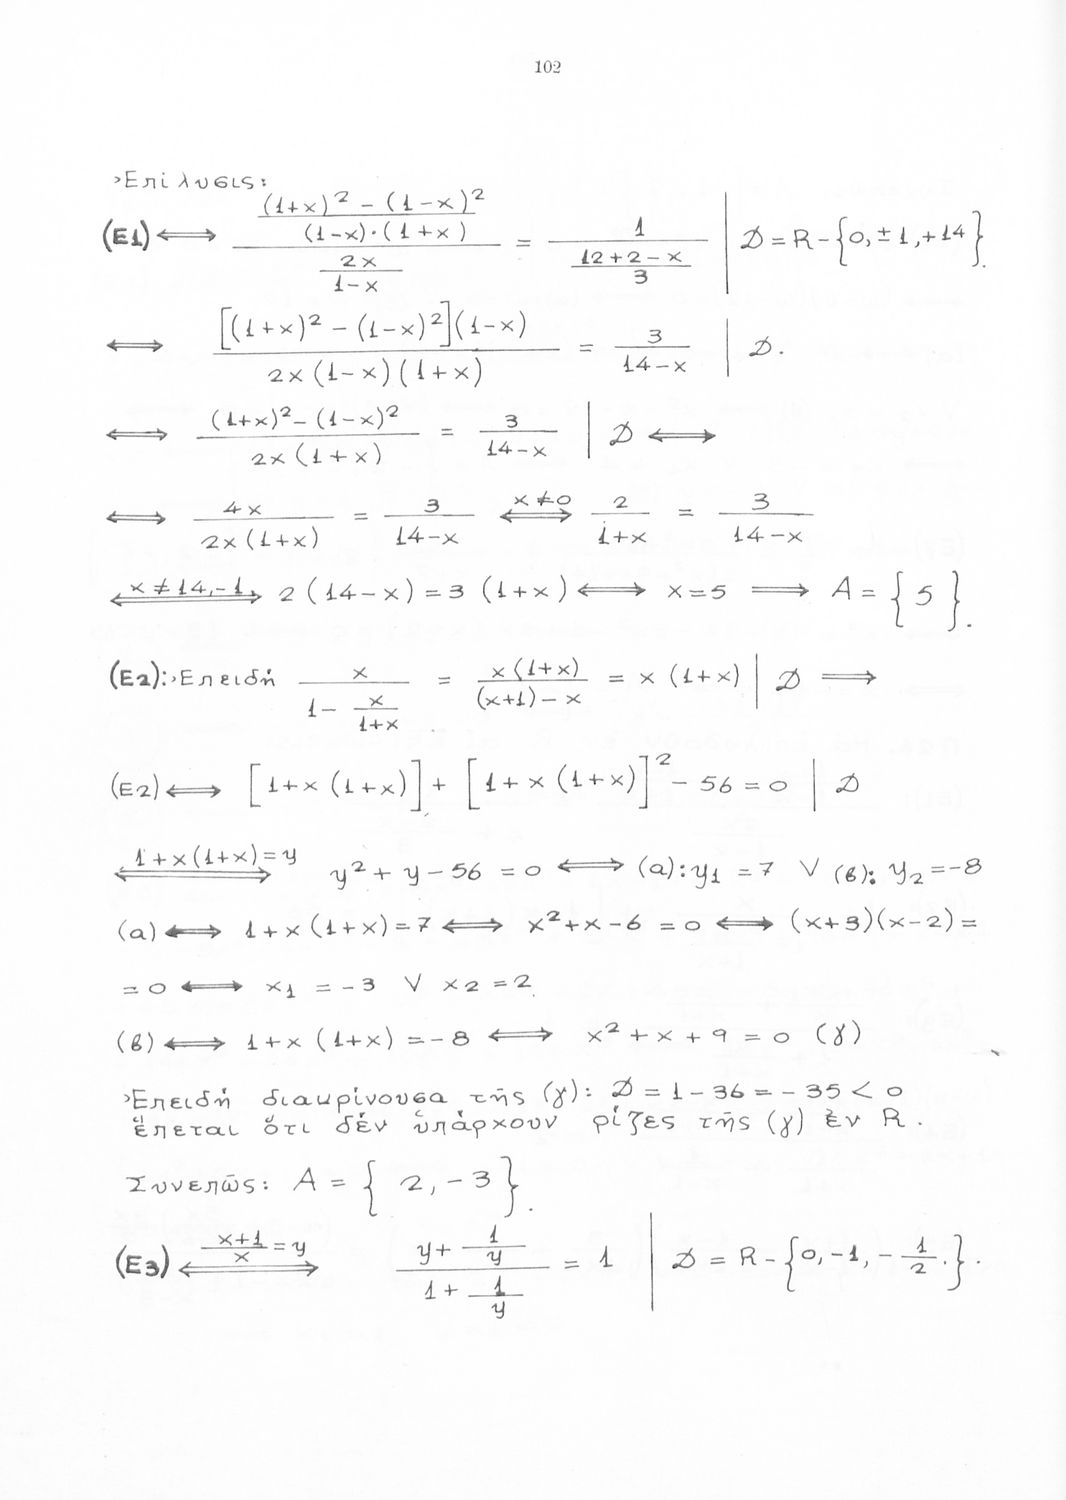 102
Ἐπίλυσις:
(E1) ⟺ \frac{\frac{(1+x)^2 - (1-x)^2}{(1-x)·(1+x)}}{\frac{2x}{1-x}} = \frac{1}{\frac{12+2-x}{3}} | D = R - {0, ±1, +14}.
⟺ \frac{[(1+x)^2 - (1-x)^2](1-x)}{2x(1-x)(1+x)} = \frac{3}{14-x} | D.
⟺ \frac{(1+x)^2 - (1-x)^2}{2x(1+x)} = \frac{3}{14-x} | D ⟺
⟺ \frac{4x}{2x(1+x)} = \frac{3}{14-x} \overset{x≠0}{⟺} \frac{2}{1+x} = \frac{3}{14-x}
\overset{x≠14,-1}{⟺} 2(14-x) = 3(1+x) ⟺ x=5 ⟹ A = {5}.
(E2): Ἐπειδή \frac{x}{1-\frac{x}{1+x}} = \frac{x(1+x)}{(x+1)-x} = x(1+x) | D ⟹
(E2) ⟺ [1+x(1+x)] + [1+x(1+x)]^2 - 56 = 0 | D
\overset{1+x(1+x)=y}{⟺} y^2+y-56 = 0 ⟺ (α): y_1 = 7 ∨ (β): y_2 = -8
(α) ⟺ 1+x(1+x) = 7 ⟺ x^2+x-6 = 0 ⟺ (x+3)(x-2) =
= 0 ⟺ x_1 = -3 ∨ x_2 = 2
(β) ⟺ 1+x(1+x) = -8 ⟺ x^2+x+9 = 0 (γ)
Ἐπειδή διακρίνουσα τῆς (γ): D = 1-36 = -35 < 0
ἕπεται ὅτι δέν ὑπάρχουν ρίζες τῆς (γ) ἐν R.
Συνεπῶς: A = {2, -3}.
(E3) \overset{\frac{x+1}{x}=y}{⟺} \frac{y+\frac{1}{y}}{1+\frac{1}{y}} = 1 | D = R - {0, -1, -\frac{1}{2}.}.